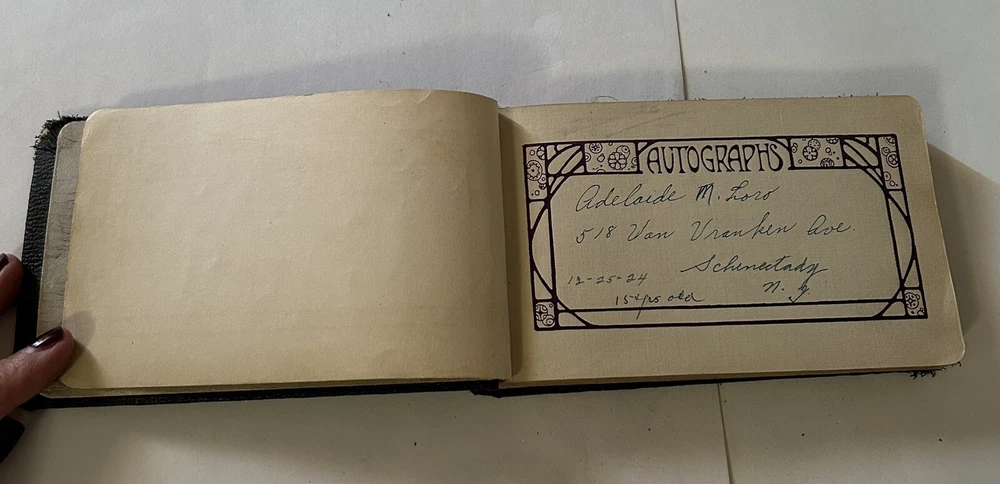 AUTOGRAPHS
Adelaide M. Loro
518 Van Vranken Ave.
Schenectady
12-25-24
N. Y.
15 yrs old